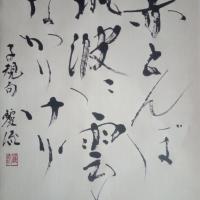 赤とんぼ
筑波に雲も
なかりけり
子規句